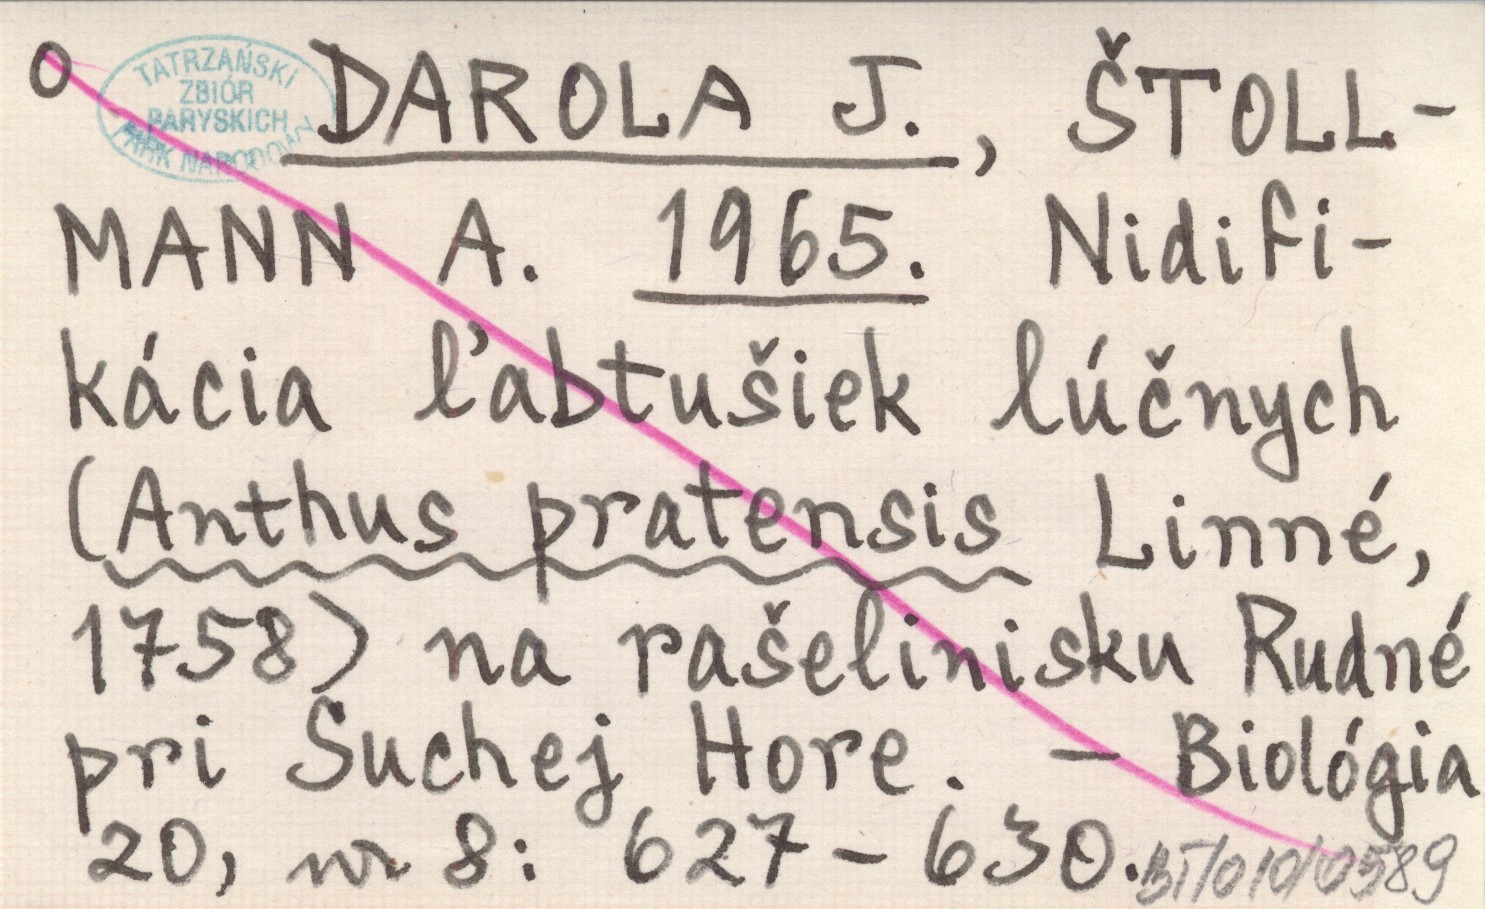 O
TATRZAŃSKI
ZBIÓR
PARYSKICH
PARK NARODOWY
DAROLA J., ŠTOLL-
MANN A. 1965. Nidifi-
kácia ľabtušiek lúčnych
(Anthus pratensis Linné,
1758) na rašelinisku Rudné
pri Suchej Hore. – Biológia
20, nr 8: 627–630.